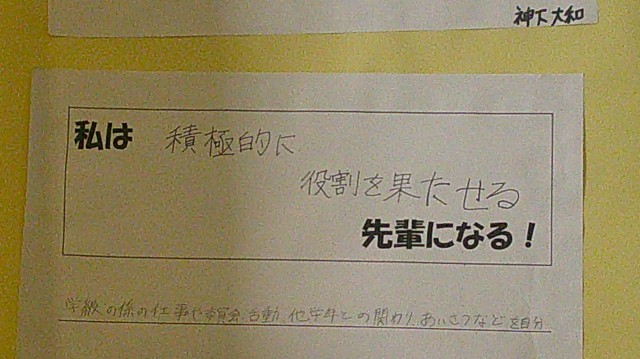 神下大和
私は 積極的に
役割を果たせる
先輩になる！
学級の係の仕事や委員会活動、他学年との関わり、あいさつなどを自分